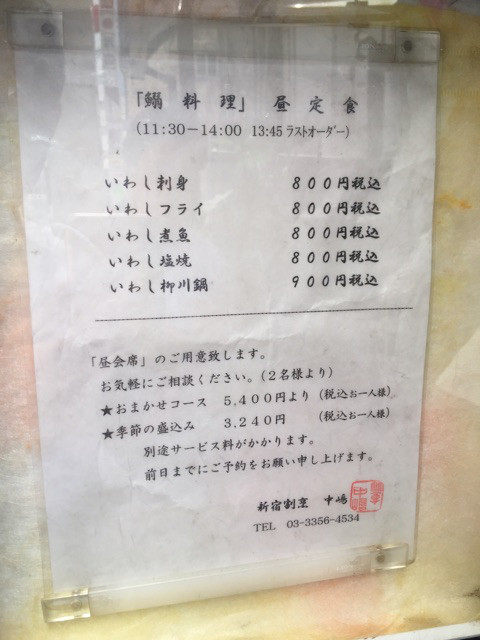 「鰯 料 理」 昼 定 食
(11:30－14:00 13:45 ラストオーダー)
いわし刺身 800円税込
いわしフライ 800円税込
いわし煮魚 800円税込
いわし塩焼 800円税込
いわし柳川鍋 900円税込
「昼会席」のご用意致します。
お気軽にご相談ください。(2名様より)
★おまかせコース 5,400円より (税込お一人様)
★季節の盛込み 3,240円 (税込お一人様)
別途サービス料がかかります。
前日までにご予約をお願い申し上げます。
新宿割烹 中嶋
TEL 03-3356-4534